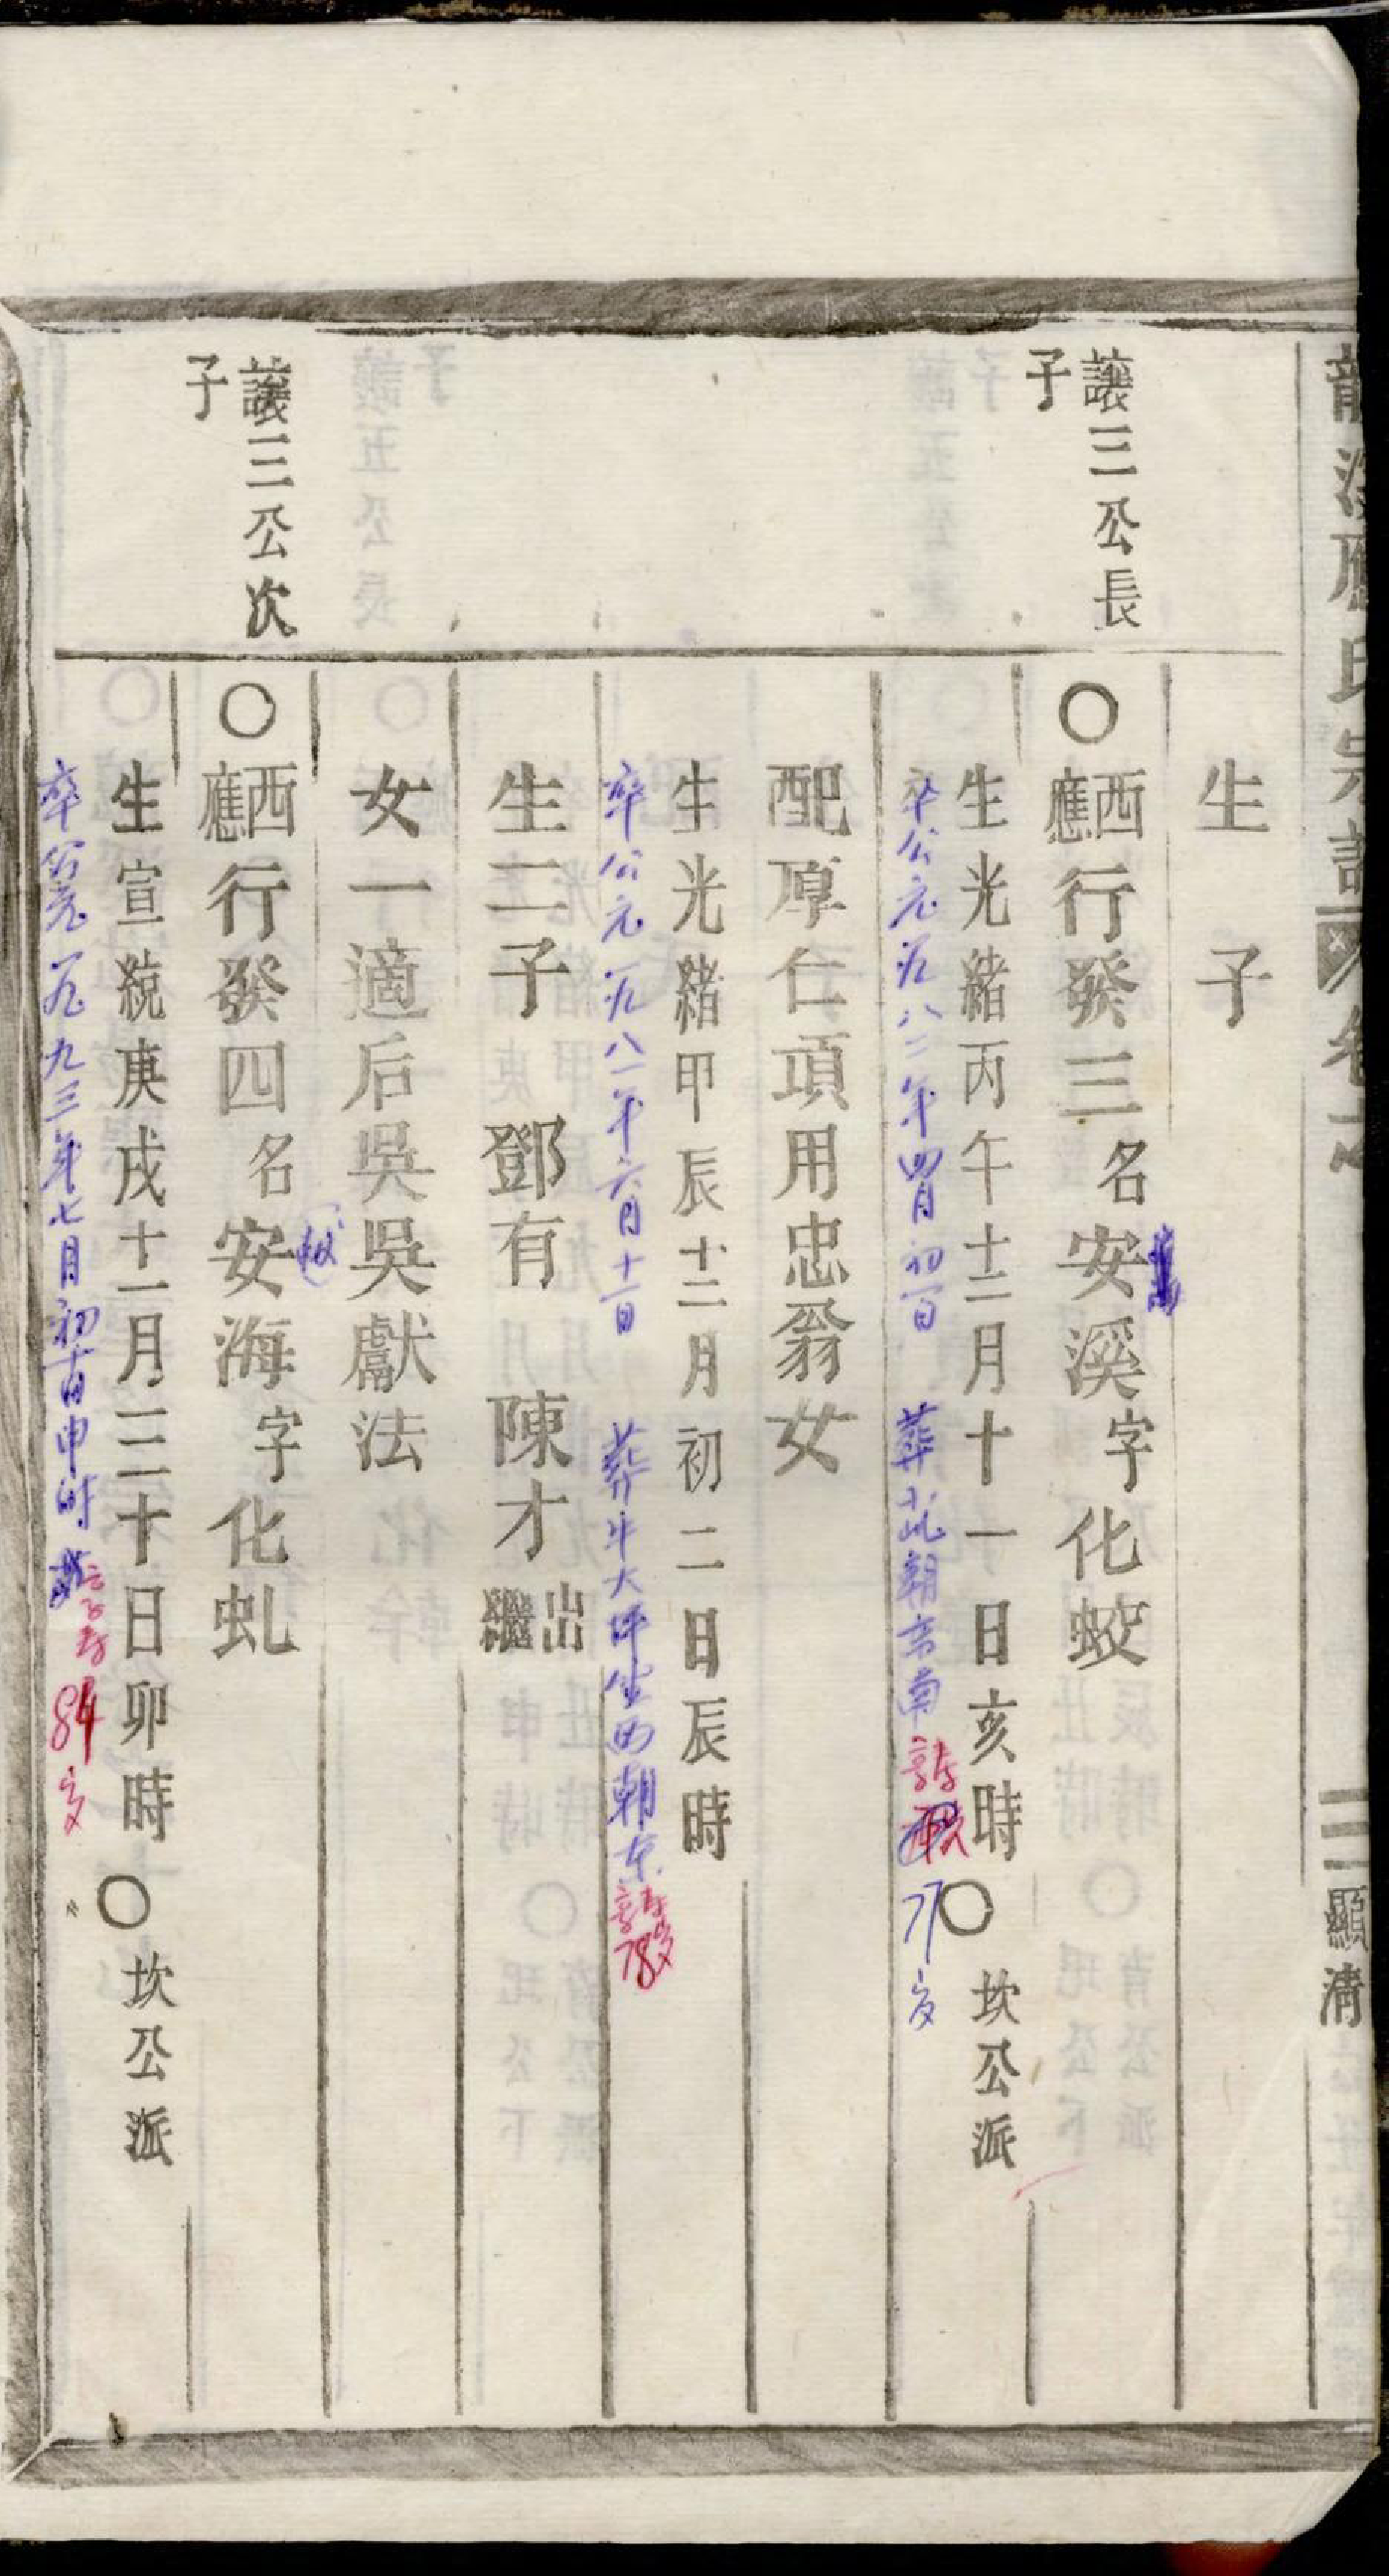 應氏宗譜 卷之 三 顯清
生 子
讓三公長
子
○西應行發三名安溪字化蛟
生光緒丙午十二月十一日亥時○坎公派
卒公元一九八二年四月初一日 葬 北朝 南 77歲
配厚仁項用忠翁女
生光緒甲辰十二月初二日辰時
卒公元一九八一年六月十一日 葬牛大坪坐西朝东 享寿78岁
生二子 鄧有 陳才出繼
女一適后吳吳獻法
讓三公次
子
○西應行發四名安海字化虬
生宣統庚戌十一月二十日卯時○坎公派
卒公元一九九三年七月初十日申时 享寿84岁